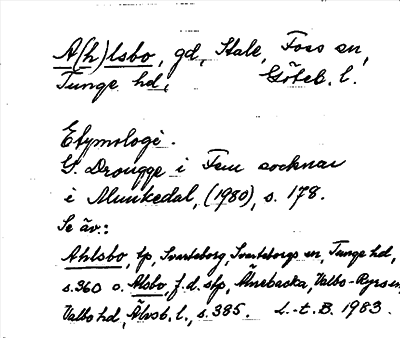 A(h)lsbo, gd, Hale, Foss sn,
Tunge hd, Göteb. l.
Etymologi.
G. Drougge i Fem socknar
i Munkedal, (1980), s. 178.
Se äv.:
Ahlsbo, tp, Svarteborg, Svarteborgs sn, Tunge hd,
s. 360 o. Alsbo, f.d. stp, Änebacka, Valbo-Ryrs sn,
Valbo hd, Älvsb. l., s. 385. L.-t. B. 1983.